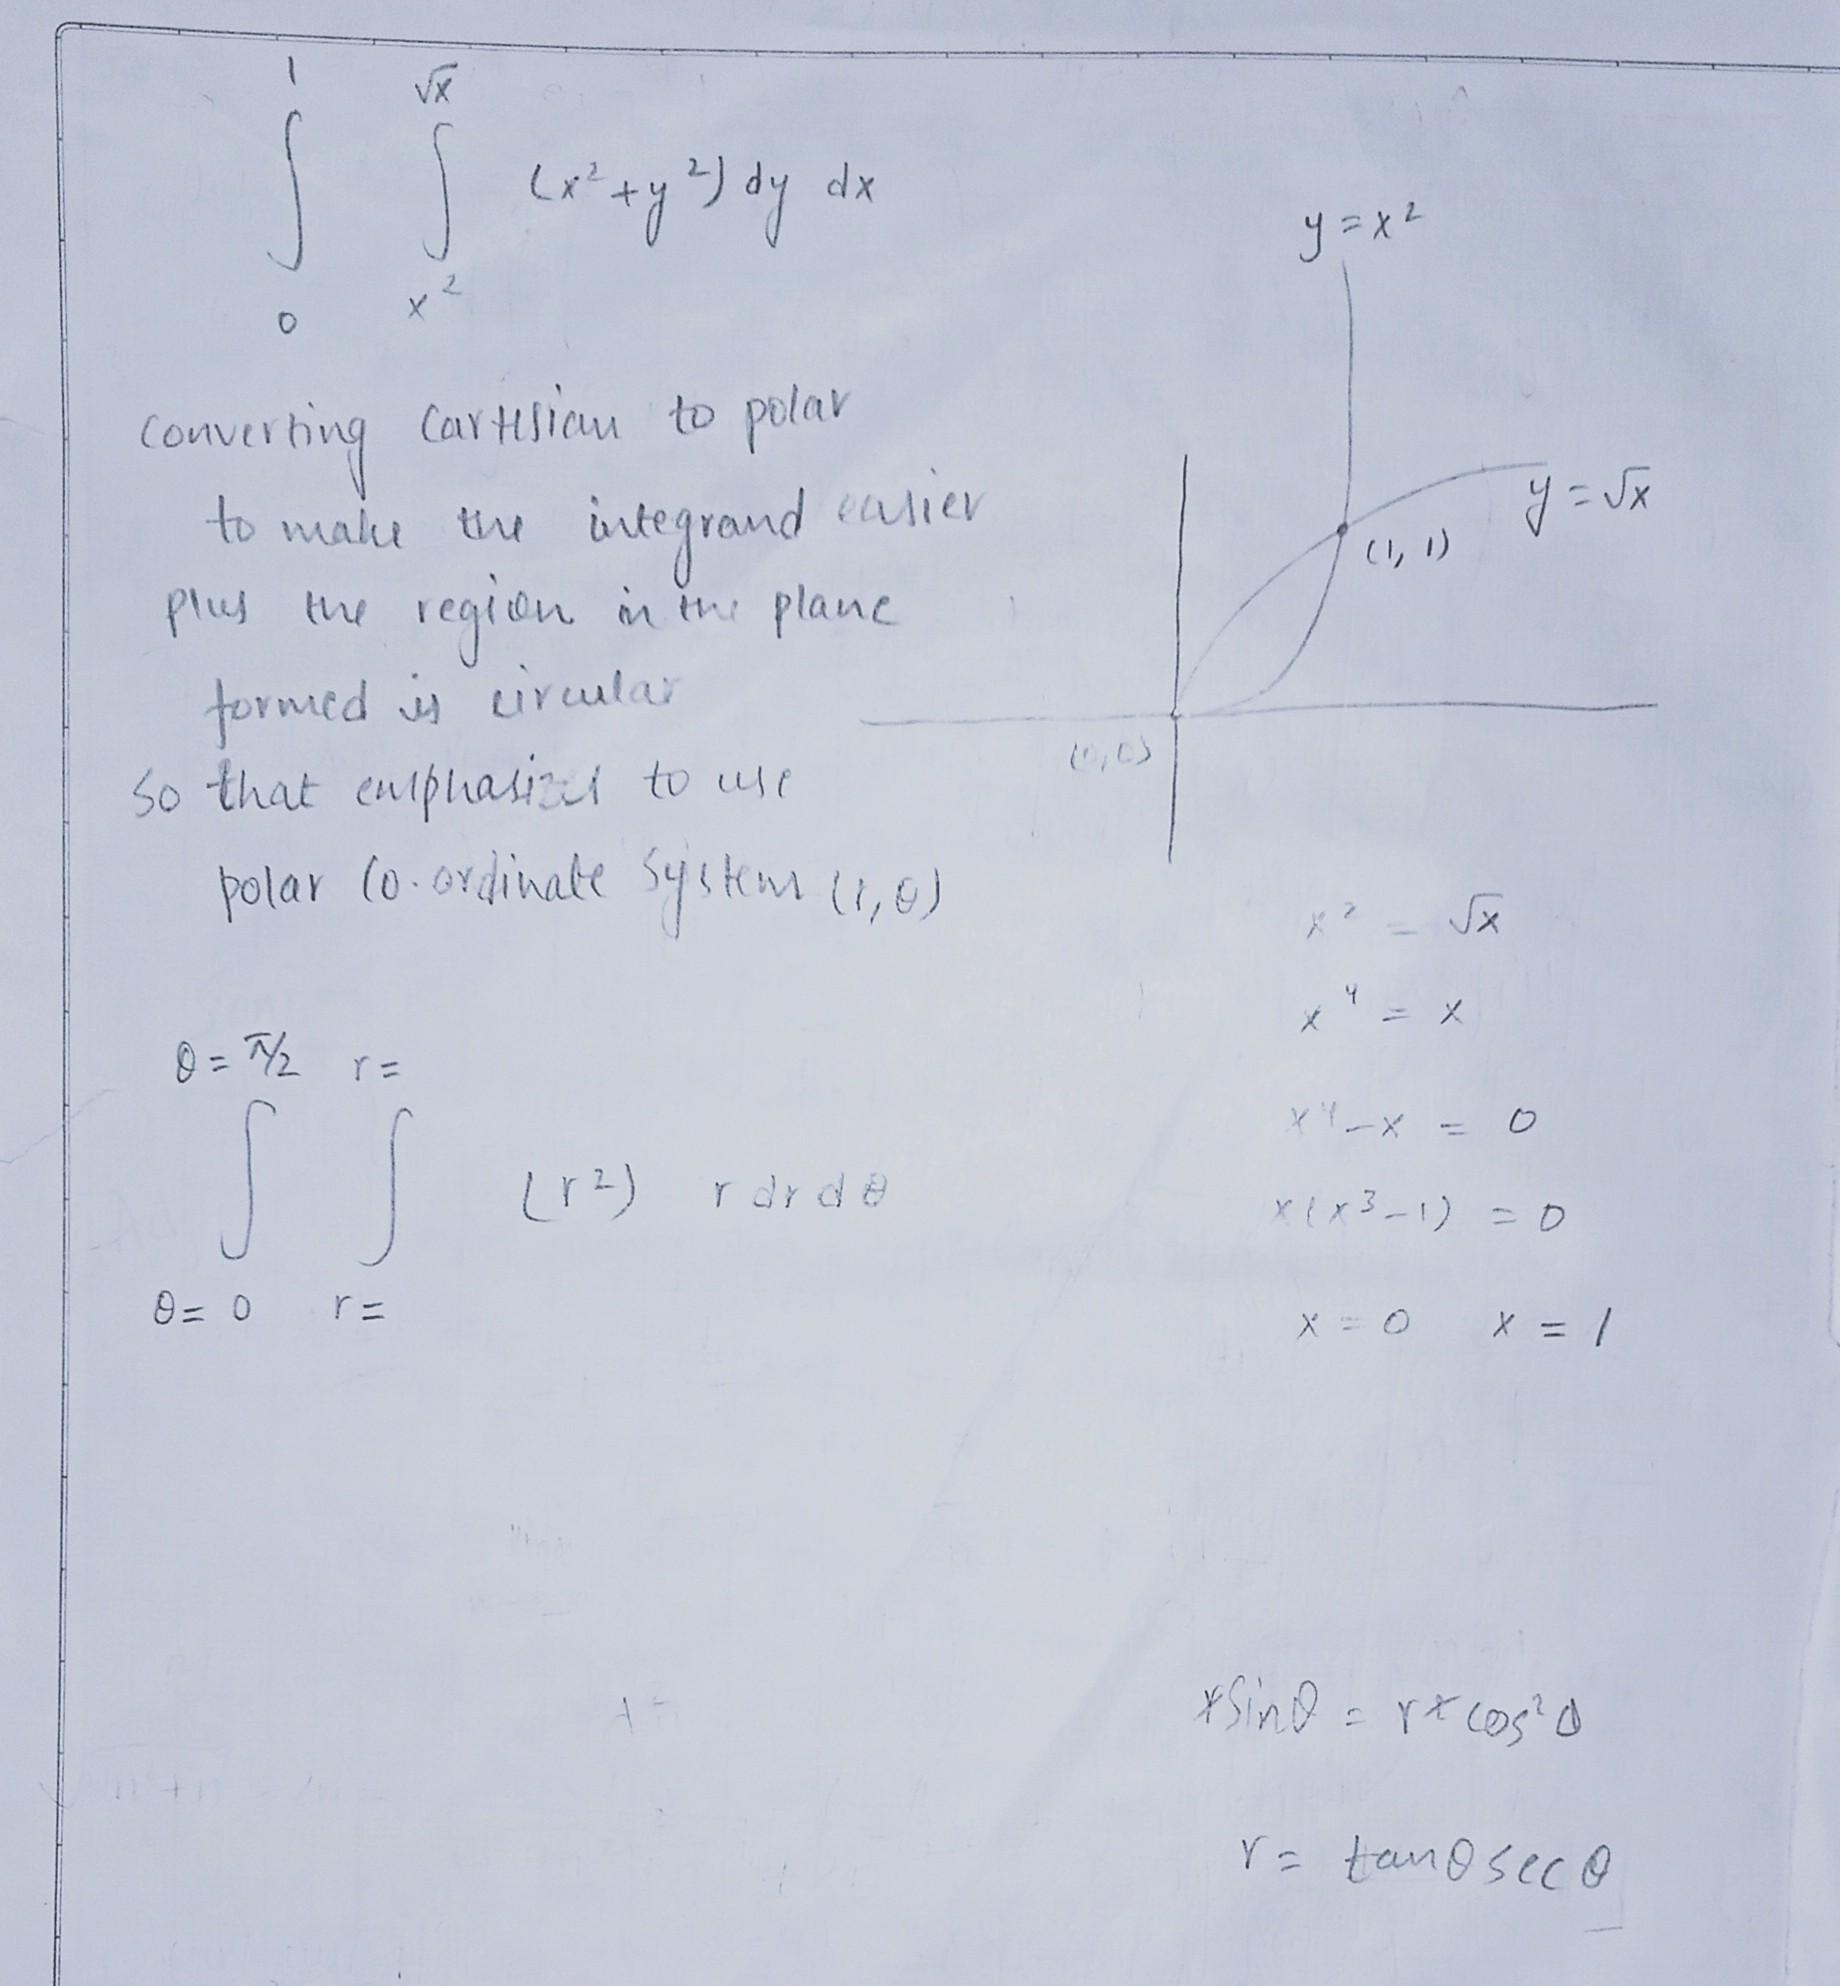 1 √x
∫ ∫ (x²+y²) dy dx
0 x²
converting Cartesian to polar
to make the integrand easier
plus the region in the plane
formed is circular
so that emphasizes to use
polar co-ordinate system (r, θ)
y = x²
y = √x
(1, 1)
(0,0)
x² = √x
x⁴ = x
x⁴ - x = 0
x(x³-1) = 0
x = 0 x = 1
θ = π/2 r =
∫ ∫ (r²) r dr dθ
θ = 0 r =
r sinθ = r² cos²θ
r = tanθ secθ